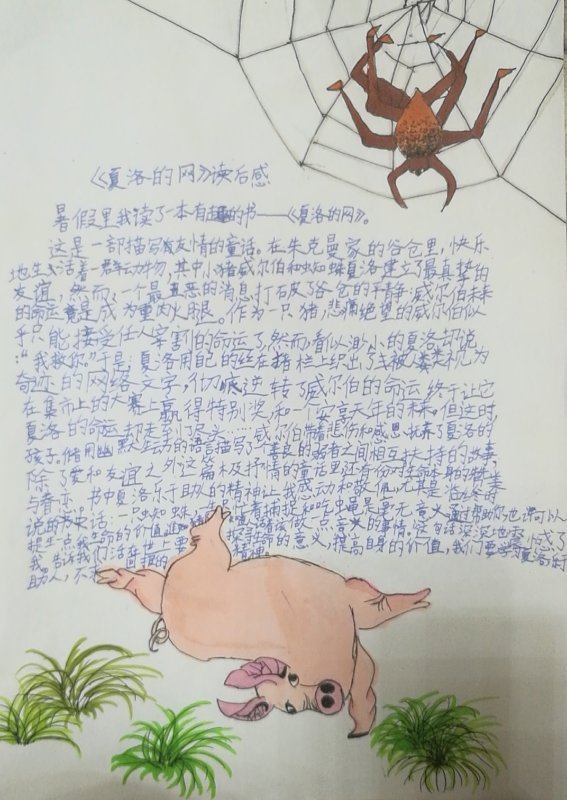 《夏洛的网》读后感
暑假里我读了一本有趣的书——《夏洛的网》。
这是一部描写友情的童话。在朱克曼家的谷仓里，快乐
地生活着一群动物，其中小猪威尔伯和蜘蛛夏洛建立了最真挚的
友谊，然而，一个最丑恶的消息打破了谷仓的平静：威尔伯未来
的命运竟是成为熏肉火腿。作为一只猪，悲痛绝望的威尔伯似
乎只能接受任人宰割的命运了，然而看似渺小的夏洛却说
："我救你。"于是，夏洛用自己的丝在猪栏上织出了被人类视为
奇迹的网络文字，彻底逆转了威尔伯的命运，终于让它
在集市上的大赛上赢得特别奖，和一个安享天年的未来。但这时，
夏洛的命运却走到了尽头……威尔伯带着悲伤和感恩抚养了夏洛的
孩子。作者用幽默生动的语言描写了善良的弱者之间相互扶持的故事，
除了爱和友谊之外，这篇极抒情的童话里还有份对生命本身的赞美
与眷恋。书中夏洛乐于助人的精神让我感动和敬佩，尤其是临终时
说的书中话：一只蜘蛛，一生忙着捕捉和吃苍蝇是毫无意义，通过帮助你也许可以
提升一点我生命的价值，
我。告诉我们活在世上要 生命的意义，提高自身的价值，我们要学夏洛的
助人，不 回报的 精神。